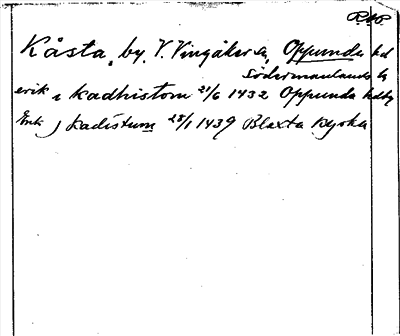 Kåsta, by, V. Vingåker sn, Oppunda hd
Södermanlands l
erik i kadhistom 21/6 1432 Oppunda hdtg
Erik i kadistum 28/1 1439 Blaxta kyrka